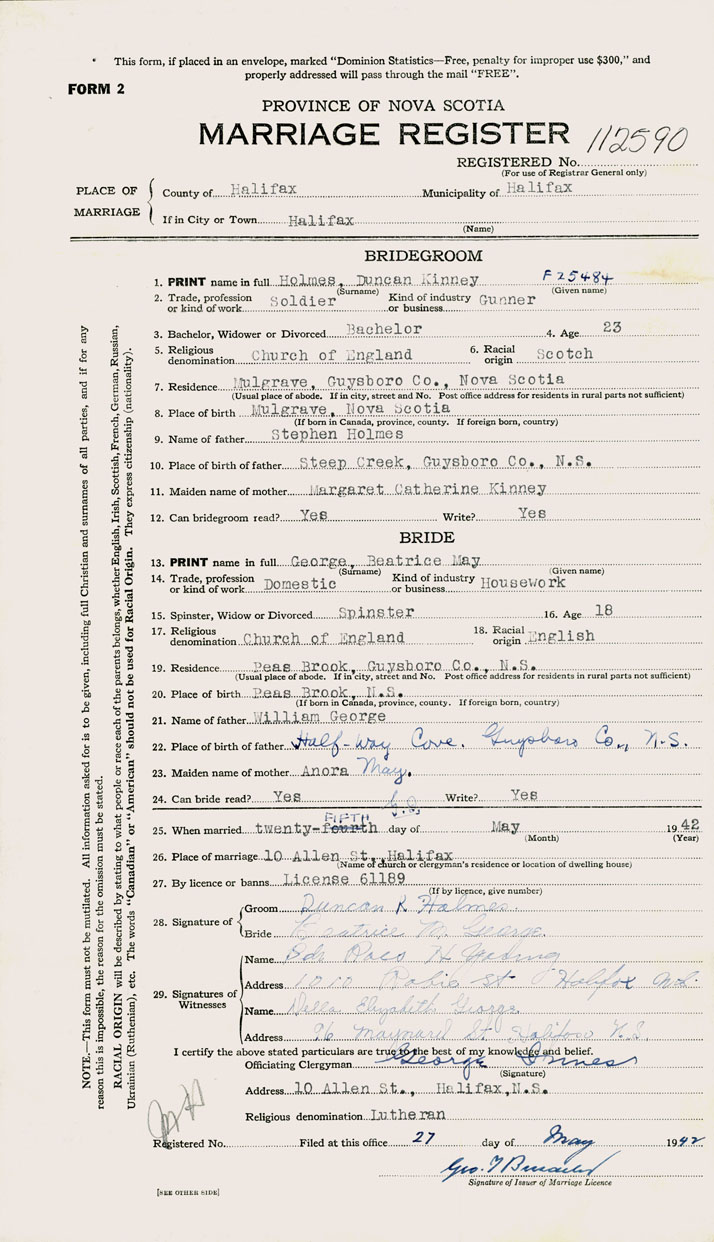 * This form, if placed in an envelope, marked "Dominion Statistics—Free, penalty for improper use $300," and
properly addressed will pass through the mail "FREE".
FORM 2
PROVINCE OF NOVA SCOTIA
MARRIAGE REGISTER 112590
REGISTERED No.
(For use of Registrar General only)
PLACE OF MARRIAGE
County of Halifax Municipality of Halifax
If in City or Town Halifax
(Name)
BRIDEGROOM
1. PRINT name in full Holmes, Duncan Kinney F25484
(Surname) (Given name)
2. Trade, profession or kind of work Soldier Kind of industry or business Gunner
3. Bachelor, Widower or Divorced Bachelor 4. Age 23
5. Religious denomination Church of England 6. Racial origin Scotch
7. Residence Mulgrave, Guysboro Co., Nova Scotia
(Usual place of abode. If in city, street and No. Post office address for residents in rural parts not sufficient)
8. Place of birth Mulgrave, Nova Scotia
(If born in Canada, province, county. If foreign born, country)
9. Name of father Stephen Holmes
10. Place of birth of father Steep Creek, Guysboro Co., N.S.
11. Maiden name of mother Margaret Catherine Kinney
12. Can bridegroom read? Yes Write? Yes
BRIDE
13. PRINT name in full George, Beatrice May
(Surname) (Given name)
14. Trade, profession or kind of work Domestic Kind of industry or business Housework
15. Spinster, Widow or Divorced Spinster 16. Age 18
17. Religious denomination Church of England 18. Racial origin English
19. Residence Peas Brook, Guysboro Co., N.S.
(Usual place of abode. If in city, street and No. Post office address for residents in rural parts not sufficient)
20. Place of birth Peas Brook, N.S.
(If born in Canada, province, county. If foreign born, country)
21. Name of father William George
22. Place of birth of father Half-Way Cove. Guysboro Co., N.S.
23. Maiden name of mother Anora May.
24. Can bride read? Yes Write? Yes
FIFTH
25. When married twenty-fourth day of May 1942
(Month) (Year)
26. Place of marriage 10 Allen St., Halifax
(Name of church or clergyman's residence or location of dwelling house)
27. By licence or banns License 61189
(If by licence, give number)
28. Signature of
Groom Duncan K Holmes.
Bride Beatrice M. George.
29. Signatures of Witnesses
Name Bdr Ross H
Address 1010 Robie St Halifax N.S.
Name Elizabeth George
Address 96 Maynard St Halifax N.S.
I certify the above stated particulars are true to the best of my knowledge and belief.
Officiating Clergyman George Innes
(Signature)
Address 10 Allen St., Halifax, N.S.
Religious denomination Lutheran
Registered No. Filed at this office 27 day of May 1942
Geo. T
Signature of Issuer of Marriage Licence
[SEE OTHER SIDE]
NOTE.—This form must not be mutilated. All information asked for is to be given, including full Christian and surnames of all parties, and if for any
reason this is impossible, the reason for the omission must be stated.
RACIAL ORIGIN will be described by stating to what people or race each of the parents belongs, whether English, Irish, Scottish, French, German, Russian,
Ukrainian (Ruthenian), etc. The words "Canadian" or "American" should not be used for Racial Origin. They express citizenship (nationality).